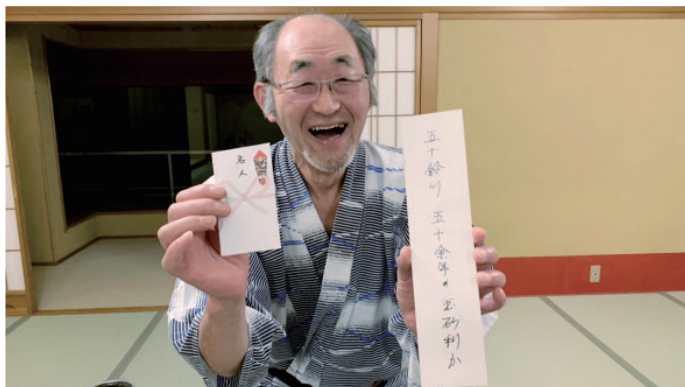 名人
五十鈴川 五十余年の 玉砂利か